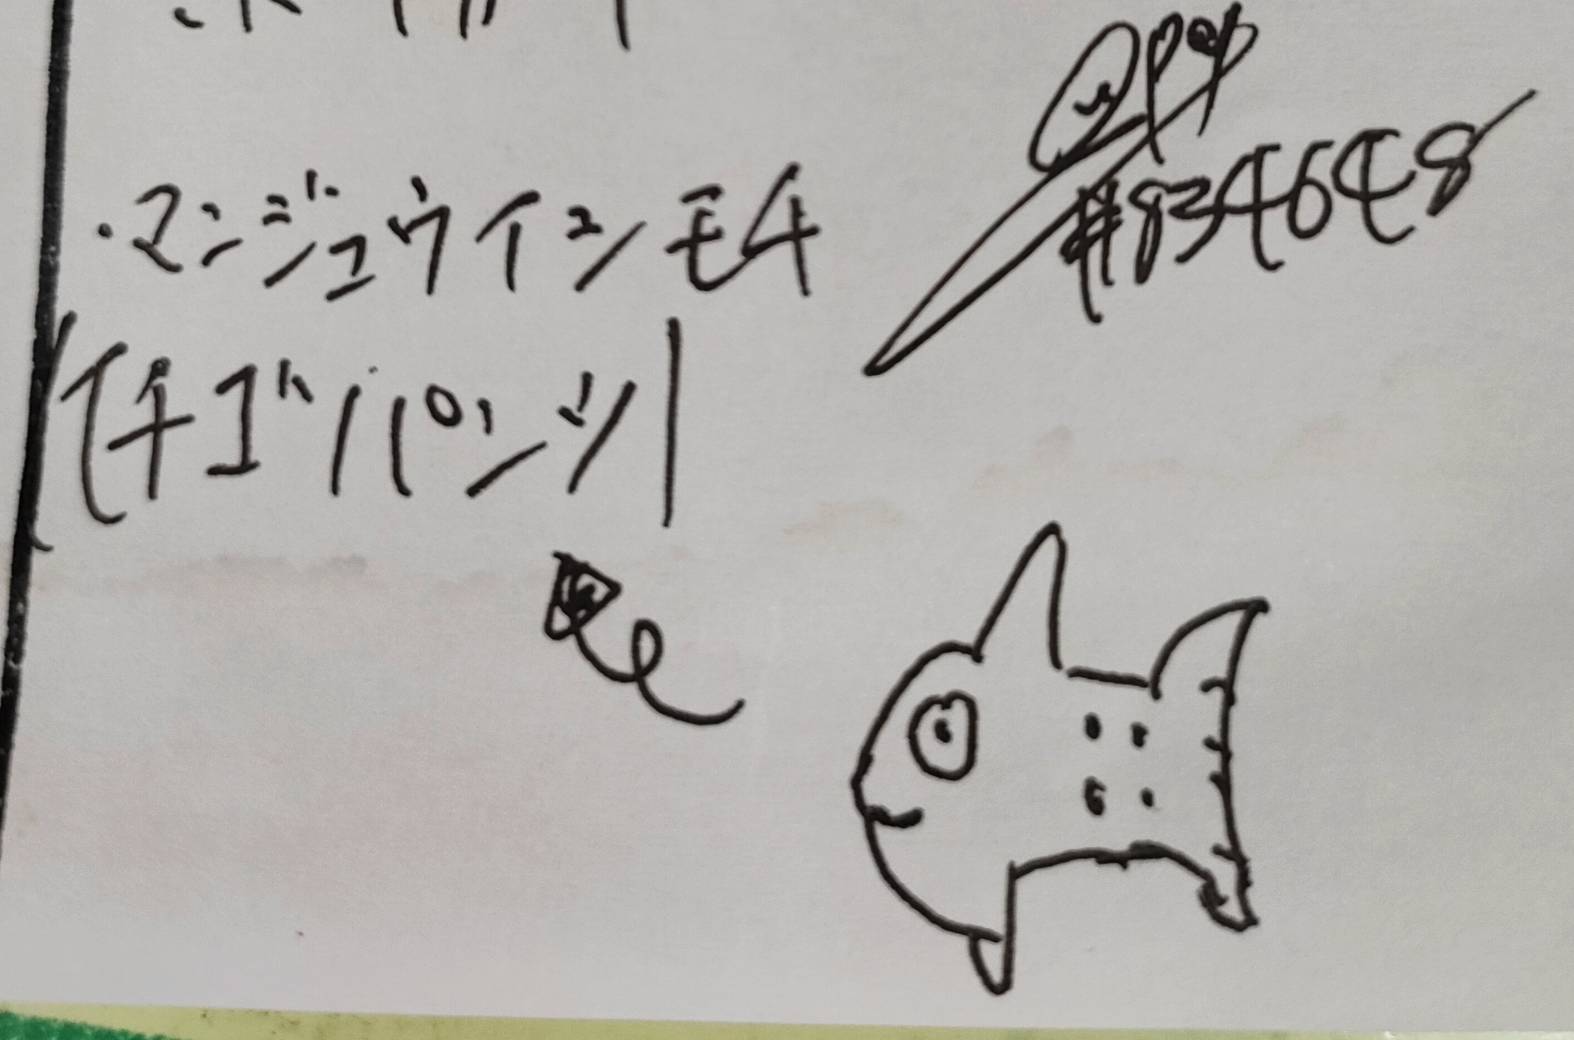 ・マンジュウイシモチ
(チゴパンツ)
#834648